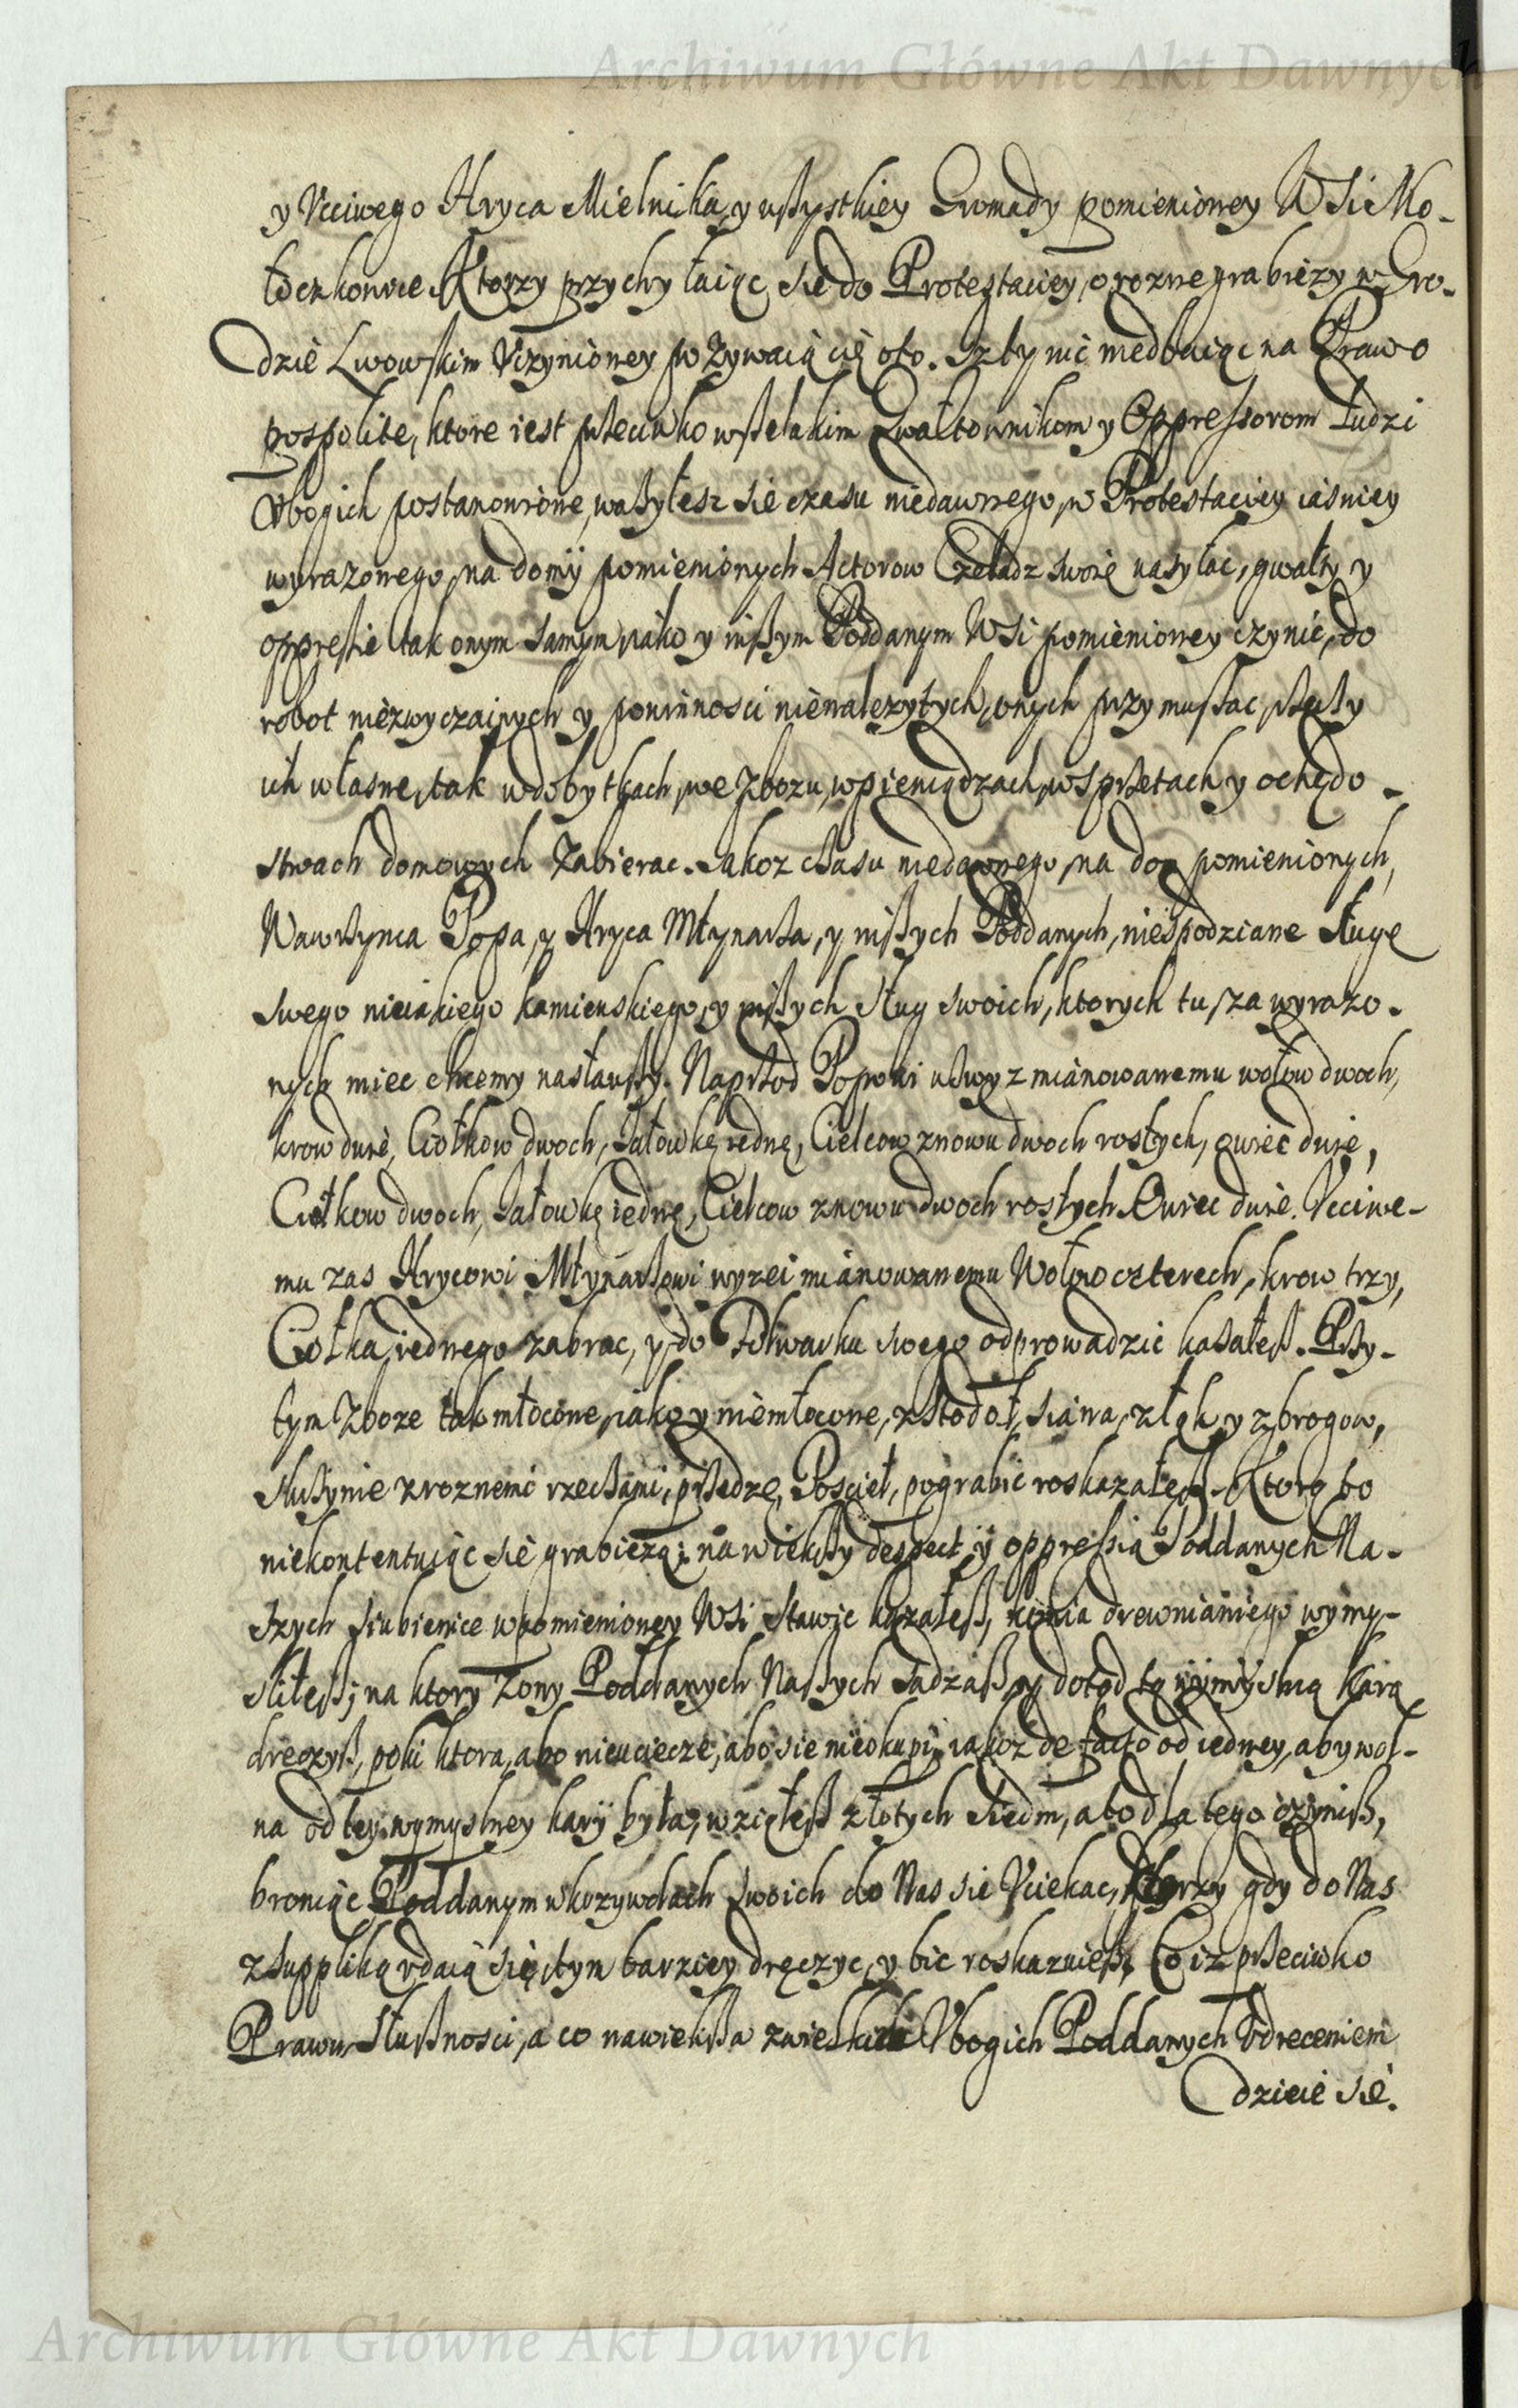 Archiwum Główne Akt Dawnych
y Vcciwego Hryca Mielnika, y wßystkiey Gromady pomienioney WSi Mo-
łoczkowce. Ktorzy przychylaiąc się do Protestaciey, o rozne grabieży w Gro-
dzie Lwowskim Vczynioney pozywaią cię oto. Iz ty nic niedbaiąc na Prawo
pospolite, ktore iest przeciwko wßelakim Gwałtownikom y Oppressorom Ludzi
Vbogich postanowione, ważyłesz się czasu niedawnego, w Protestaciey iaśniey
wyrazonego, na domy pomienionych Actorow Czeladz swoię nasyłac, gwałty y
oppressie tak onym samym, iako y inßym Poddanym WSi pomienioney czynić, do
robot niezwyczainych y powinnosci nienalezytych, onych przymußac,
ich własne, tak w dobytkach, we Zbozu, w pieniądzach, w sprzetach y ochędo-
stwach domowych zabierac. Iakoz czasu niedawnego, na dom pomienionych,
Wawrzynca Popa, y Hryca Młynarza, y inßych Poddanych, niespodzianie sługę
swego nieiakiego Kamienskiego, y inßych sług swoich, ktorych tu za wyrazo-
nych miec chcemy nasławßy. Naprzod Popowi zmianowanemu wołow dwoch,
krow dwie, Ciołkow dwoch, Jałowkę iednę, Cielcow znowu dwoch rosłych, owiec dwie,
Ciołkow dwoch, Jałowkę iednę, Cielcow znowu dwoch rosłych. Owiec dwie. Vcciwe-
mu zas Hrycowi Młynarzowi wyzei mianowanemu Wołow czterech, krow trzy,
Ciołka iednego zabrac, y do Folwarku swego odprowadzić kazałeß. Przy-
tym Zboze tak młocone, iako y niemłocone, z stodoł, siana, z łąk y z brogow,
skrzynie z roznemi rzeczami, przędzę, Posciel, pograbić roskazałeß. Ktorą to
niekontentuiąc się grabieżą; na większy despect y oppressią Poddanych Na-
szych szubienice w pomienioney WSi stawic kazałeß, konia drewnianiego wymy-
sliłeß; na ktory żony Poddanych Naßych sadzaß, y dotąd tą wymyslną karą
dręczyß, poki ktora, abo nieuciecze, abo sie nieokupi, iakoż de facto od iedney, aby wol-
na od tey wymyslney kary była, wziąłeß złotych siedm, a to dla tego czyniß,
broniąc Poddanym w krzywdach swoich do Nas się Vciekac, Ktorzy gdy do Nas
z suppliką vdaią się, tym barziey dręczyc, y bic roskazuieß, Co iz przeciwko
Prawu, słußnosci, a co nawiększa z wielkim Vbogich Poddanych vdręczeniem
dzieie się.
Archiwum Główne Akt Dawnych